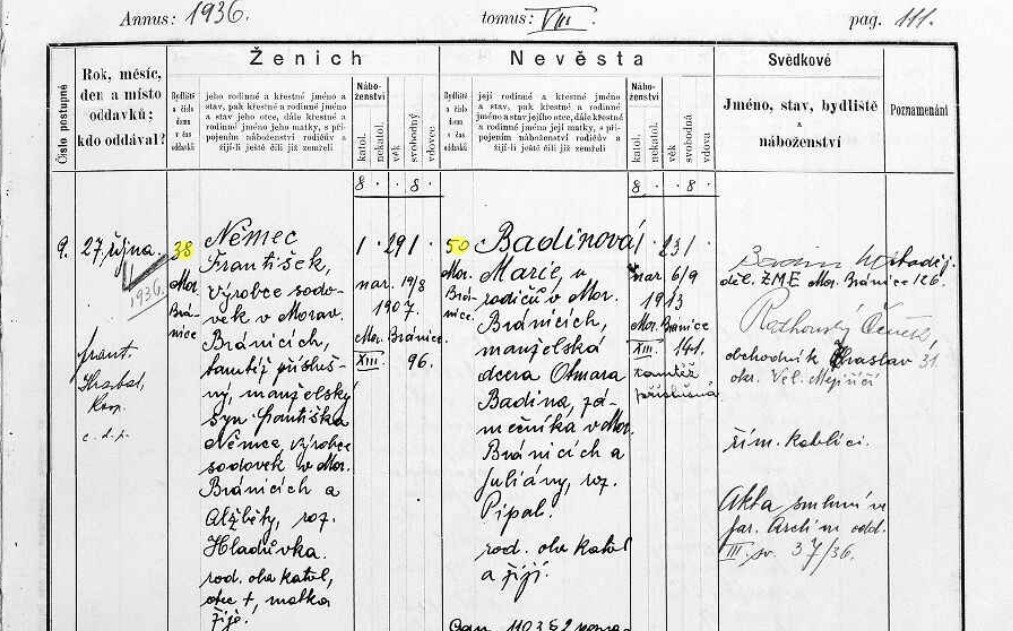 Annus: 1936. tomus: VIII. pag. 111.
Ženich
Nevěsta
Svědkové
Číslo postupné
Rok, měsíc,
den a místo
oddavků;
kdo oddával?
Bydliště
a číslo
domu
v čas
oddavků
jeho rodinné a křestné jméno a
stav, pak křestné a rodinné jméno
a stav jeho otce, dále křestné
a rodinné jméno jeho matky, s při-
pojením náboženství rodičův a
žijí-li ještě čili již zemřeli
Nábo-
ženství
katol.
nekatol.
věk
svobodný
vdovec
Bydliště
a číslo
domu
v čas
oddavků
její rodinné a křestné jméno
a stav, pak křestné a rodinné
jméno a stav jejího otce, dále křestné
a rodinné jméno její matky, s při-
pojením náboženství rodičův a
žijí-li ještě čili již zemřeli
Nábo-
ženství
katol.
nekatol.
věk
svobodná
vdova
Jméno, stav, bydliště
a
náboženství
Poznamenání
8 . . 8 .
8 . . 8 .
9.
27. října
1936.
Frant.
Hrabal,
koop.
c. d. p.
38
Mor.
Brá-
nice
Němec
František,
výrobce sodo-
vek v Morav.
Bránicích,
tamtéž přísluš-
ný, manželský
syn Františka
Němce, výrobce
sodovek v Mor.
Bránicích a
Alžběty, roz.
Hladůvka.
rod. oba katol,
otec +, matka
žije.
1 . 29 1 .
nar. 19/8
1907.
Mor. Bránice
XIII. 96.
50
Mor.
Brá-
nice.
Badinová
Marie, u
rodičů v Mor.
Bránicích,
manželská
dcera Otmara
Badina, zá-
mečníka v Mor.
Bránicích a
Juliány, roz.
Pipal.
rod. oba katol
a žijí.
Can. 1103 § 2
1 . 23 1 .
nar. 6/9
1913
Mor. Bránice
XIII. 141.
tamtéž
příslušná
Badin
děl. ZME Mor. Bránice 126.
Čeněk,
obchodník Chraslav 31
okr. Vel. Mejiříčí
řím. katolíci.
Akta
far. Archivu odd.
III. sv. 37/36.